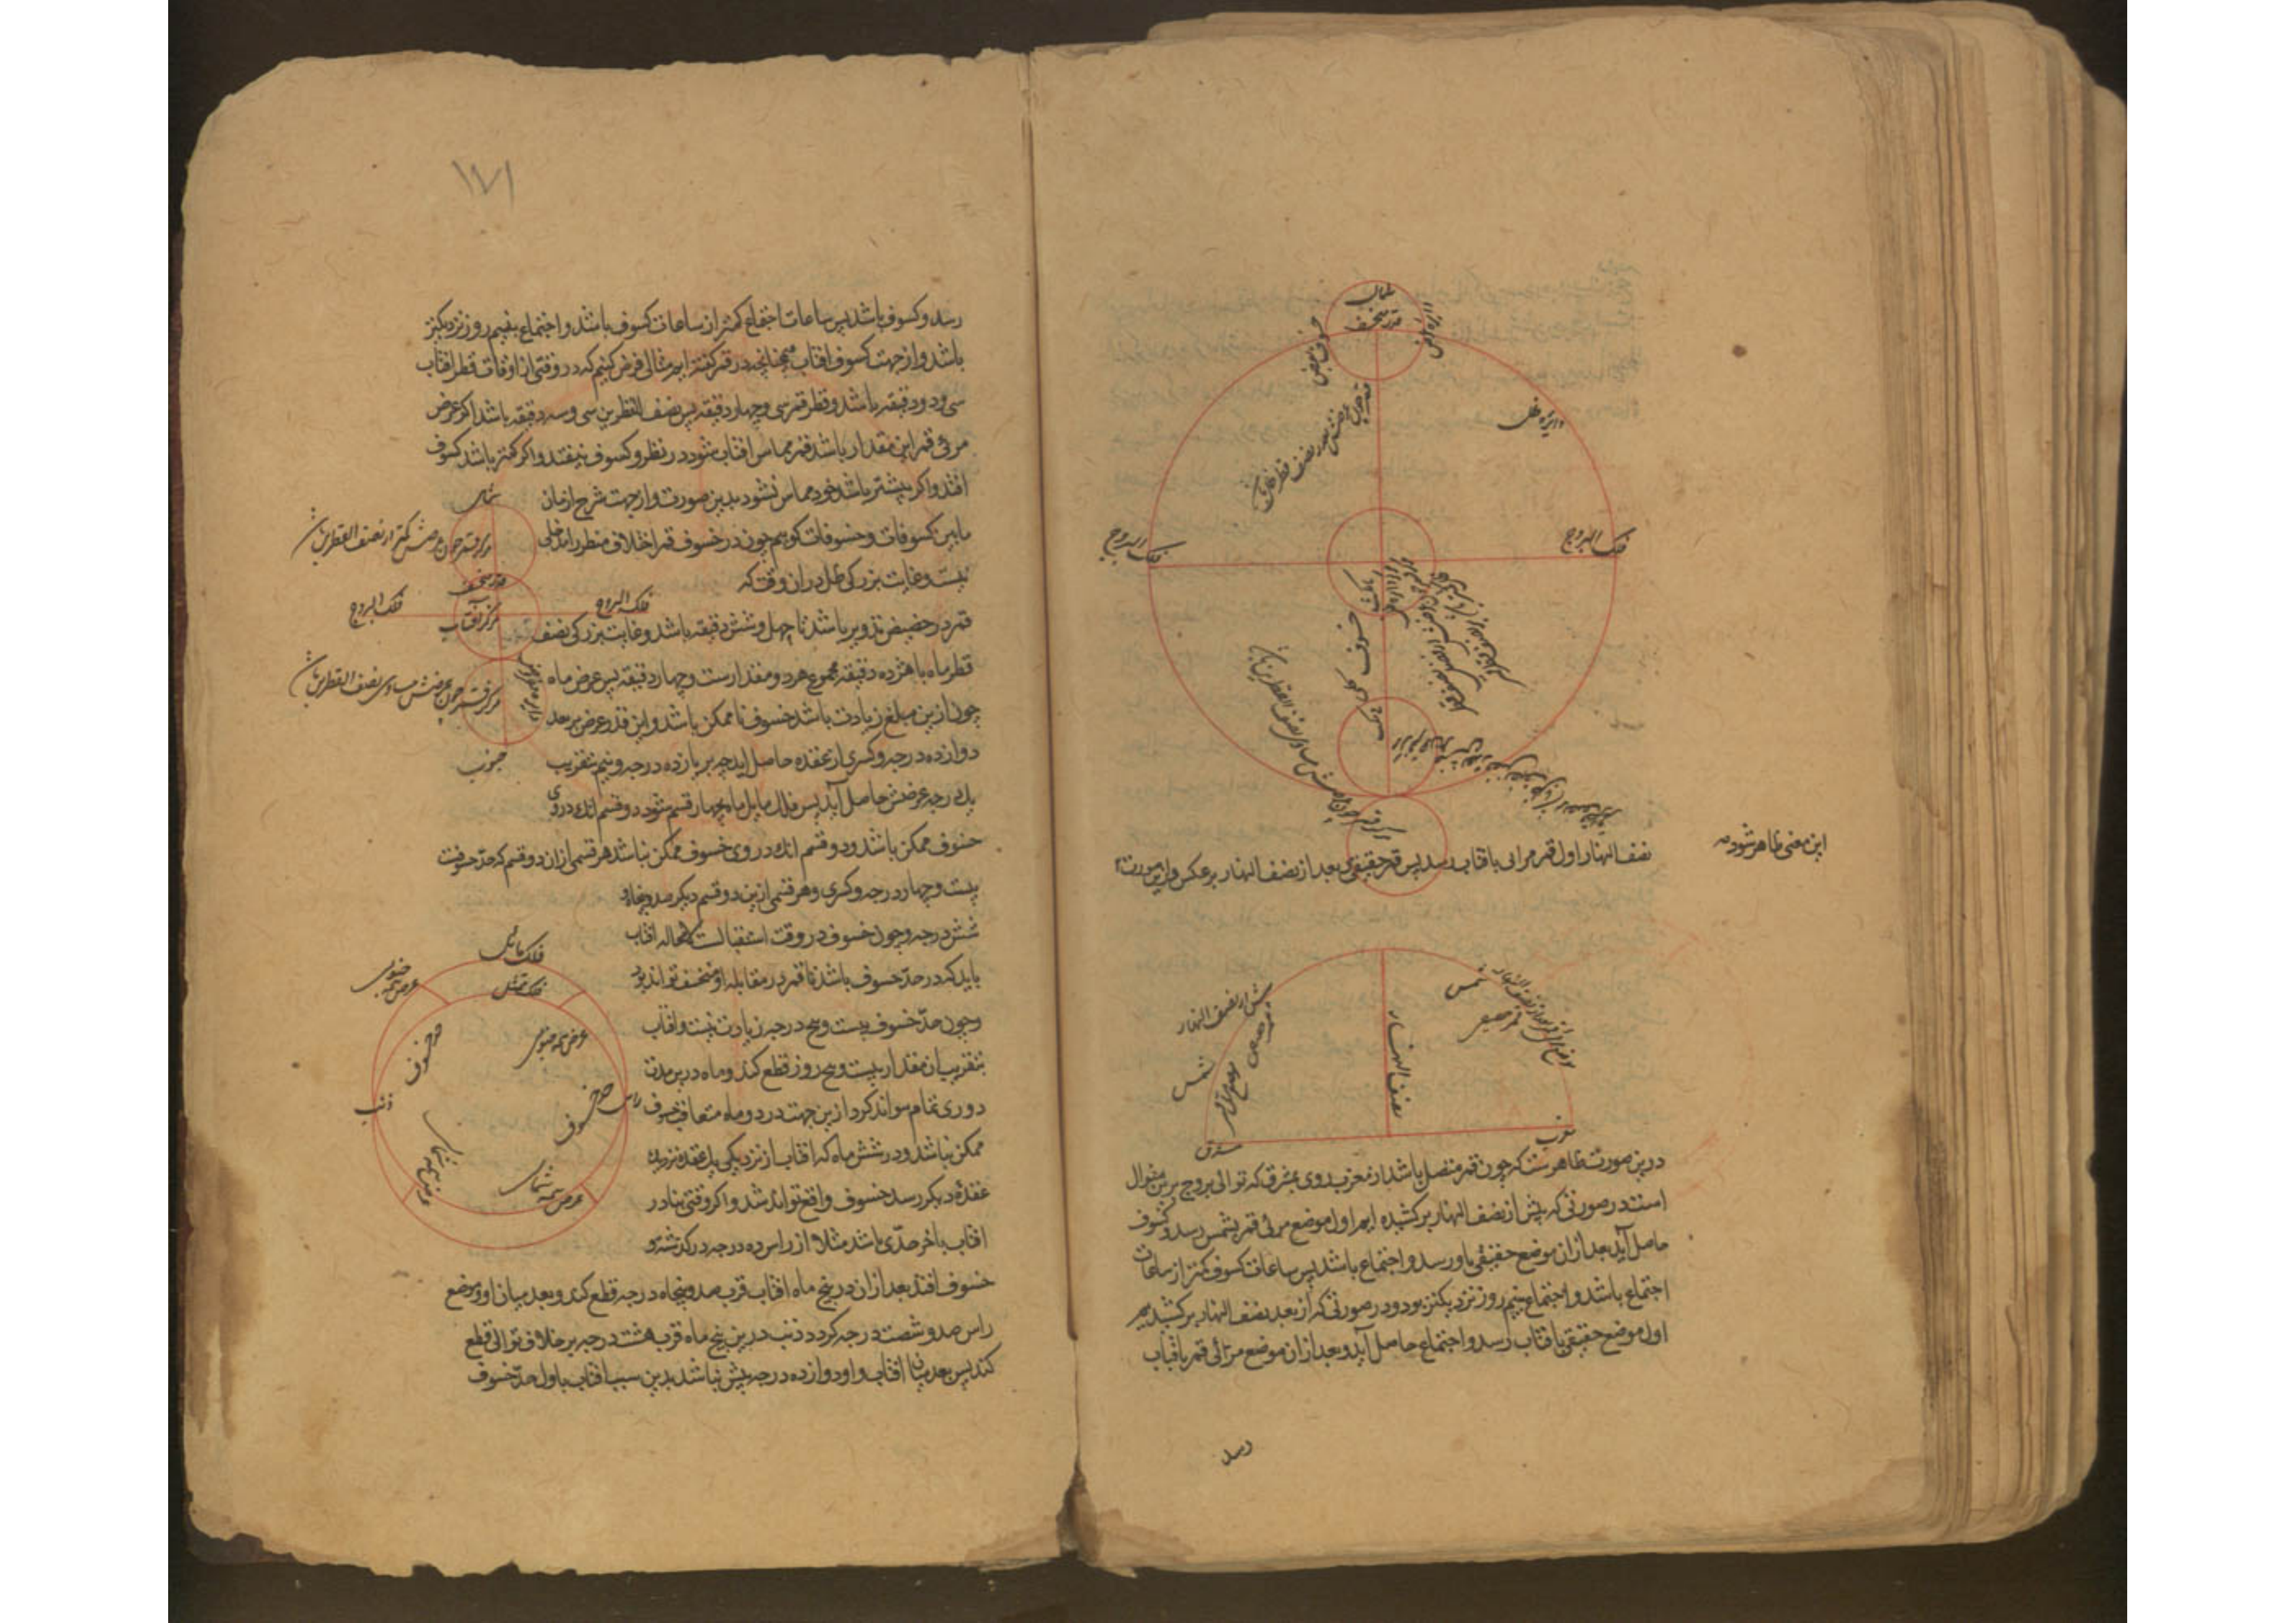 شمال
قمر منخسف
دایره ظل
فلک البروج
فلک البروج
نصف النهار اول قمر مرائی بافتاب رسد پس قمر حقیقی و بعد از نصف النهار بر عکس و ازین صورت
این معنی ظاهر شود
پیش از نصف النهار
شمس
نصف النهار
شمس
قمر حقیقی
مشرق
مغرب
درین صورت ظاهرست که چون قمر منصل باشد از مغرب روی بمشرق که توالی بروج برین منوال
است در صورتی که پیش از نصف النهار بر کشیده ایم اول موضع مرئی قمر بشمس رسد و کسوف
حاصل آید بعد از ان موضع حقیقی باو رسد و اجتماع باشد پس ساعات کسوف کمتر از ساعات
اجتماع باشد و اجتماع بنیم روز نزدیکتر بود و در صورتی که از بعد نصف النهار بر کشیدیم
اول موضع حقیقی بافتاب رسد و اجتماع حاصل آید و بعد از ان موضع مرائی قمر بافتاب
رسد
۱۷۱
رسد و کسوف باشد پس ساعات اجتماع کمتر از ساعات کسوف باشد و اجتماع بنیم روز نزدیکتر
باشد و از جهت کسوف افتاب همچنانچه در قمر گفته ایم مثالی فرض کنیم که در وقتی از اوقات قطر افتاب
سی و دو دقیقه باشد و قطر قمر سی و چهار دقیقه پس نصف القطرین سی و سه دقیقه باشد اکر عرض
مرئی قمر این مقدار باشد قمر مماس افتاب شود در نظر و کسوف نیفتد و اکر کمتر باشد کسوف
افتد و اکر بیشتر باشد خود مماس نشود بدین صورت و از جهت شرح ازمان
مابین کسوفات و خسوفات کوییم چون در خسوف قمر اختلاف منظر را مدخلی
نیست و غایت بزرکی ظل در ان وقت که
قمر در حضیض تدویر باشد تا چهل و شش دقیقه باشد و غایت بزرکی نصف
قطر ماه با هژده دقیقه مجموع هر دو مقدار ست و چهار دقیقه پس عرض ماه
چون ازین مبلغ زیادت باشد خسوف نا ممکن باشد و این قدر عرض بر بعد
دوازده درجه و کسری از عقده حاصل اید چه بر یازده درجه و نیم بتقریب
یک درجه عرضش حاصل آید پس فلک مایل ماه بچهار قسم شود دو قسم انک در وی
خسوف ممکن باشد و دو قسم انک در وی خسوف ممکن نباشد هر قسمی از ان دو قسم که حد خسوفست
بیست و چهار درجه و کسری و هر قسمی ازین دو قسم دیکر صد و پنجاه و
شش درجه و چون خسوف در وقت استقبالست لامحاله افتاب
باید که در حد خسوف باشد تا قمر در مقابله او منخسف تواند بود
و چون حد خسوف بیست و پنج درجه زیادت نیست و افتاب
بتقریب ان مقدار بیست و پنج روز قطع کند و ماه درین مدت
دوری تمام نتواند کرد ازین جهت در دو ماه متعاقب خسوف
ممکن نباشد و در شش ماه که افتاب از نزدیکی یک عقده نزدیک
عقده دیکر رسد خسوف واقع تواند شد و اکر وقتی بنادر
افتاب باخر حدی باشد مثلا از راس ده درجه در کذشته و
خسوف افتد بعد از ان در پنج ماه افتاب قرب صد و پنجاه درجه قطع کند و بعد میان او و موضع
راس صد و شصت درجه کردد و ذنب درین پنج ماه قرب هشت درجه بر خلاف توالی قطع
کند پس بعد میان افتاب و او دوازده درجه بیش نباشد بدین سبب افتاب باول حد خسوف
شمال
مرکز قمر چون عرضش کمتر از نصف القطرین باشد
فلک البروج
مرکز آفتاب
فلک البروج
مرکز قمر چون عرضش مساوی نصف القطرین باشد
جنوب
فلک مایل
فلک ممثل
حد خسوف
ذنب
راس
حد خسوف